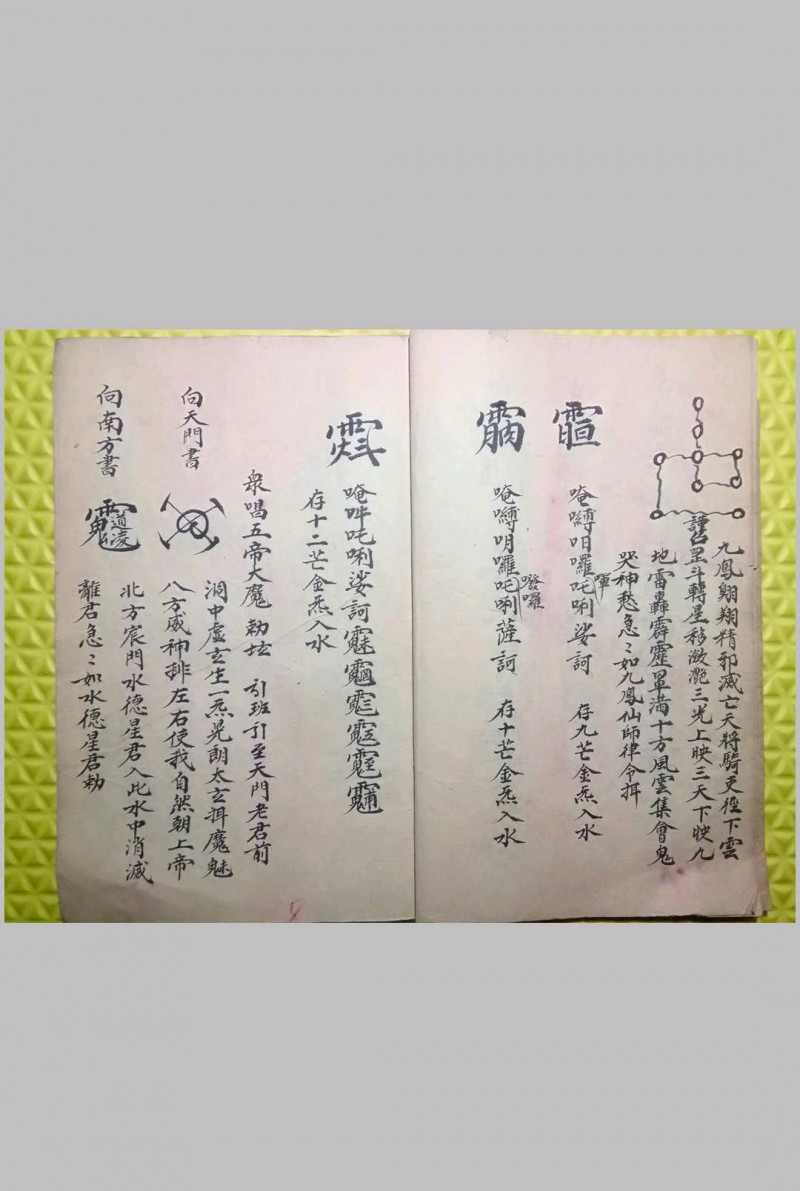 九鳳翺翔精邪滅亡天將騎吏徑下雲
罡斗轉星移潋灔三光上映三天下映九
地雷轟霹靂罩滿十方風雲集會鬼
哭神愁急〻如九鳳仙師律令揖
謹召
唵嚩日囉吒唎娑訶 存九芒金炁入水
唵嚩明囉吒唎薩訶 存十芒金炁入水
癹囉
唵吽吒唎娑訶
存十二芒金炁入水
衆唱五帝大魔 勅坛 引班引至天門老君前
向天門書
洞中虚玄生一炁晃朗太玄揖魔魅
八方威神排左右使我自然朝上帝
向南方書
道凌
北方宸門水德星君入此水中消滅
離君急〻如水德星君勅